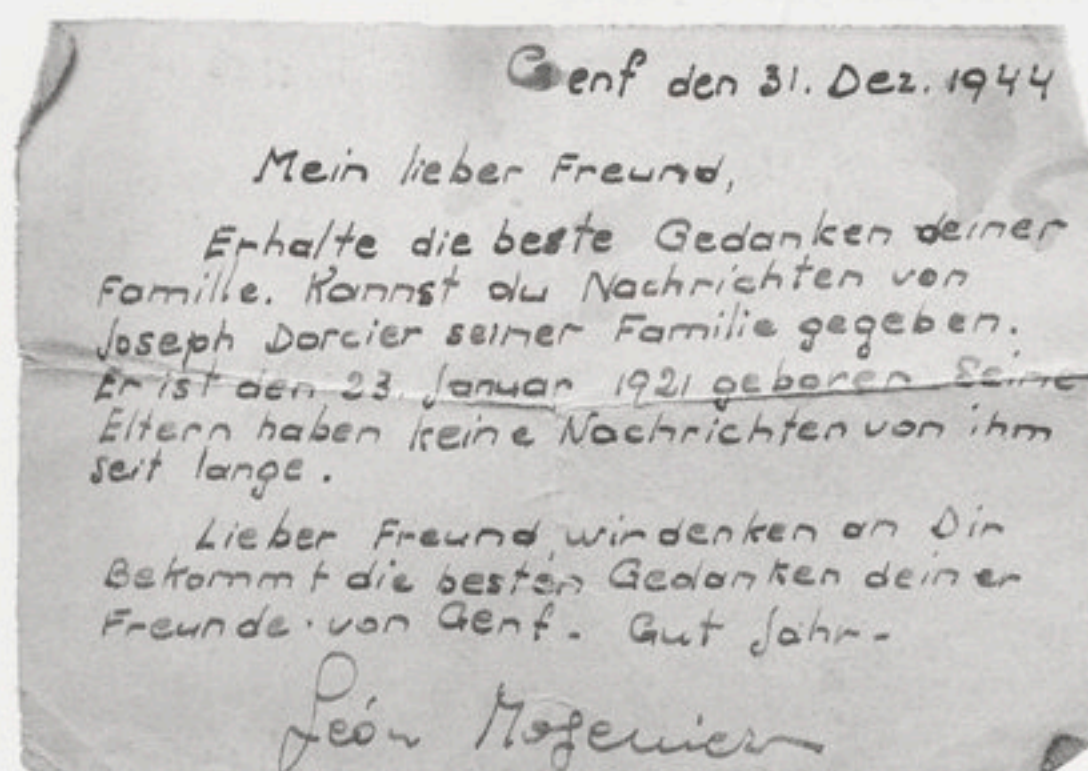 Genf den 31. Dez. 1944
Mein lieber Freund,
Erhalte die beste Gedanken deiner
Familie. Kannst du Nachrichten von
Joseph Dorcier seiner Familie gegeben.
Er ist den 23. Januar 1921 geboren Seine
Eltern haben keine Nachrichten von ihm
seit lange.
Lieber Freund, wir denken an Dir
Bekommt die besten Gedanken deiner
Freunde von Genf. Gut Jahr-
Léon